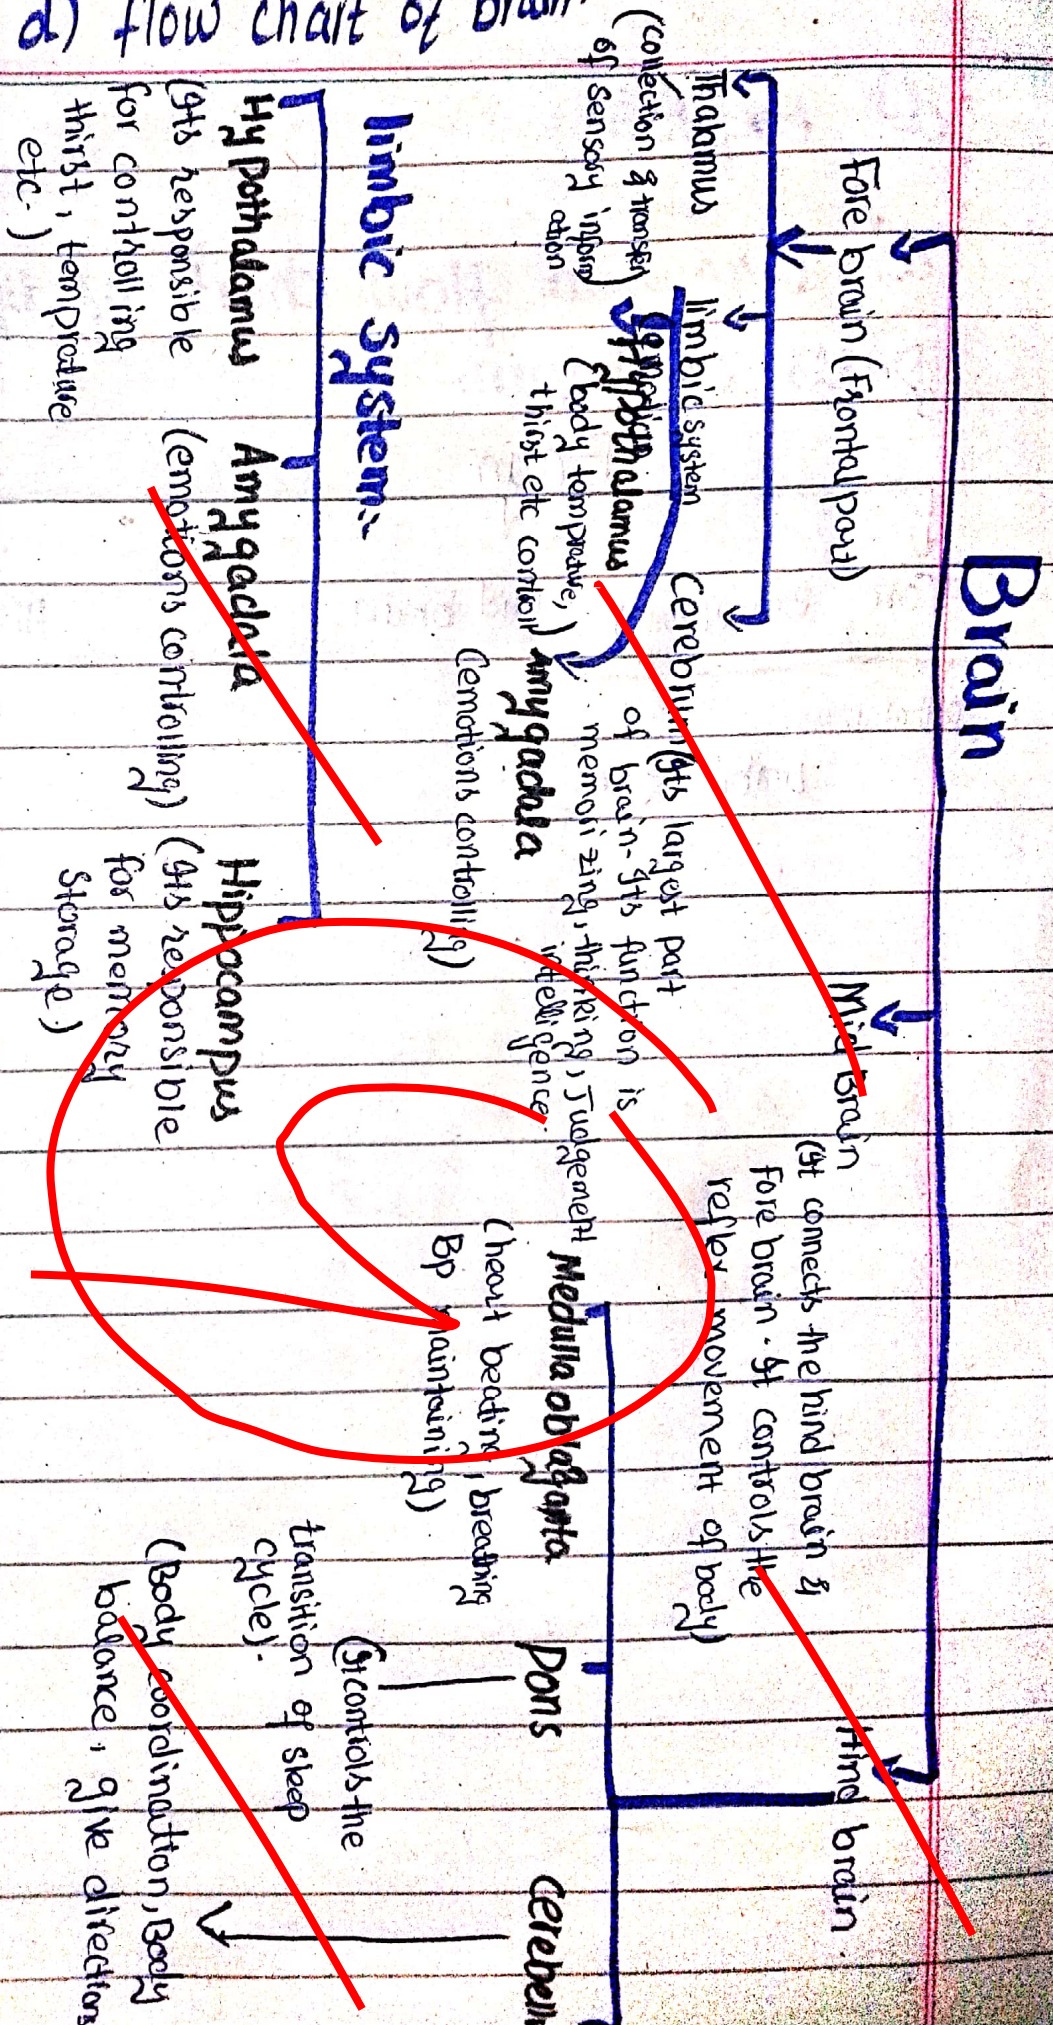 d) flow chart of brain
Brain
Fore brain (Frontal part)
Mid Brain
Hind brain
(It connects the hind brain &
Fore brain. It controls the
reflex movement of body)
Thalamus
(collection & transfer
of sensory inform
ation
limbic system
Hypothalamus
(body temprature,
thirst etc control)
Amygadala
(emotions controlling)
Cerebrum (Its largest part
of brain. Its function is
memorizing, thinking, Judgement
intelligence.
Medulla oblaganta
(heart beating, breathing
Bp maintaining)
Pons
(It controls the
transition of sleep
cycle).
Cerebell
(Body coordination, Body
balance, give directions
limbic system:-
Hypothalamus
(Its responsible
for controlling
thirst, temprature
etc.)
Amygadala
(emotions controlling)
Hippocampus
(Its responsible
for memory
Storage)